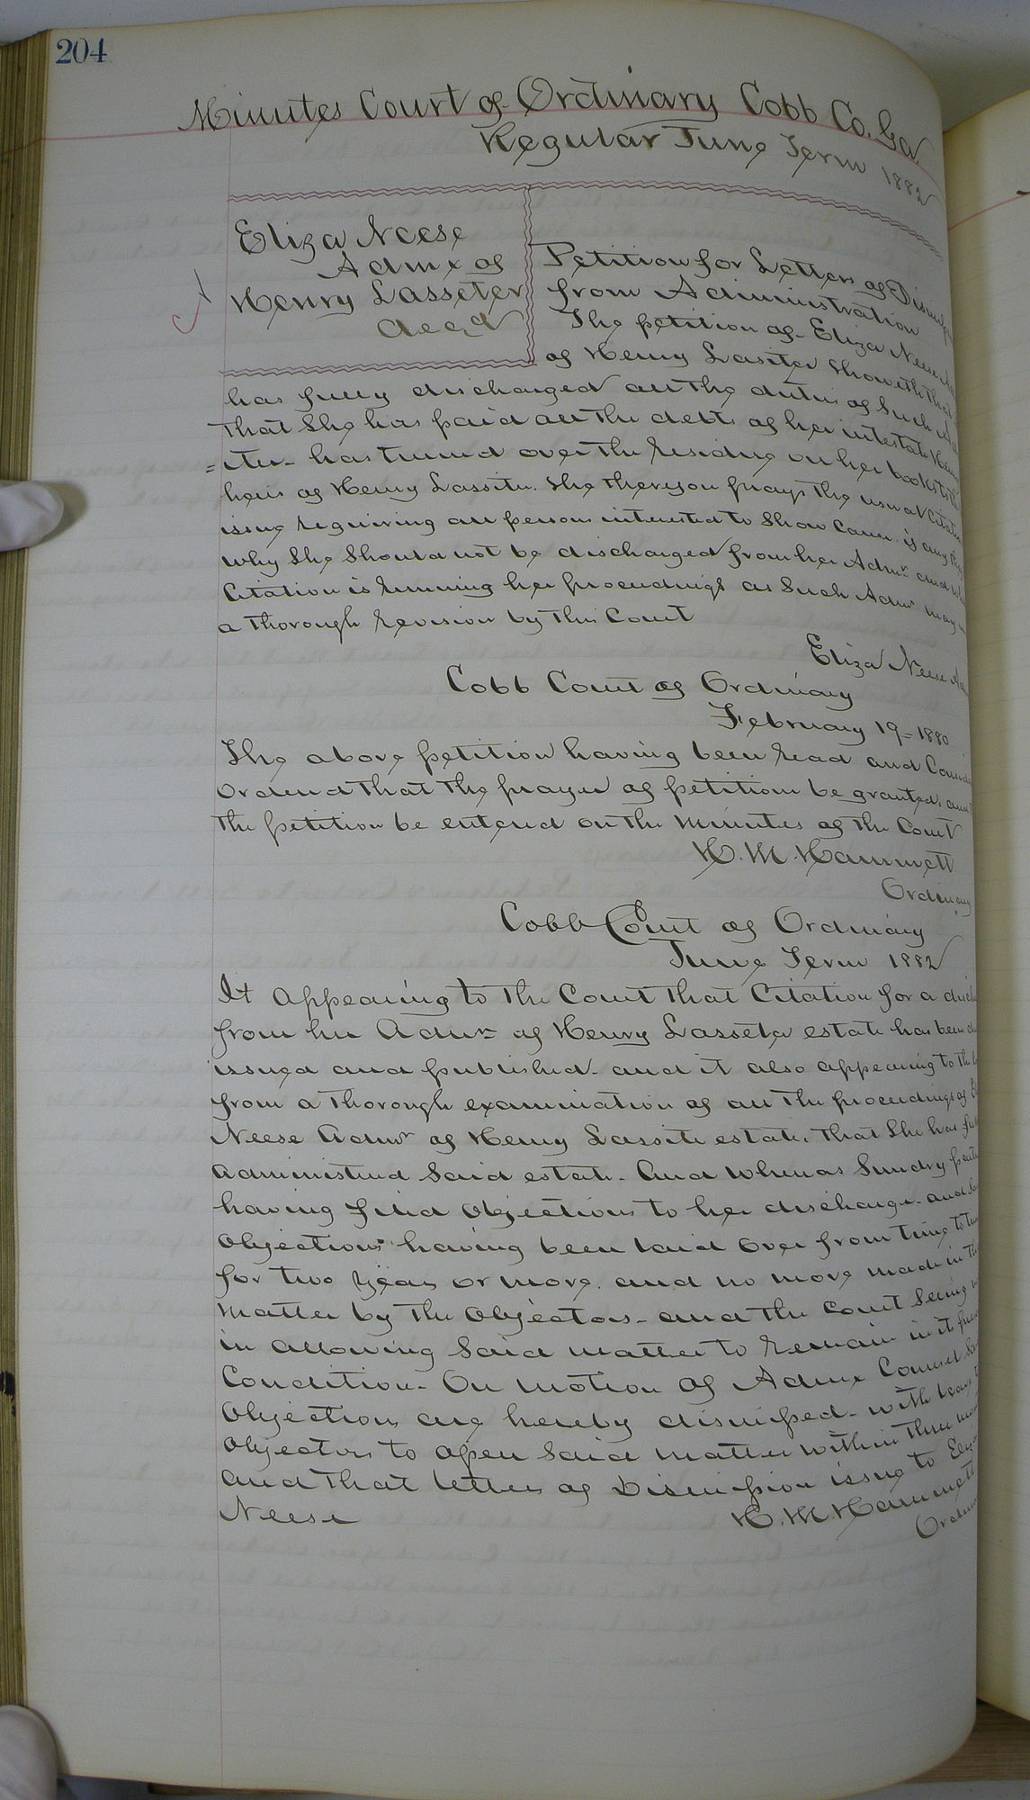 204
Minutes Court of Ordinary Cobb Co. Ga
Regular June Term 1882
Eliza Neese
Admx of
Henry Lasseter
decd
Petition for Letters of
from Administration
The petition of Eliza Neese
of Henry Lasiter Showeth that
has fully discharged all the duties of Such
that She has paid all the debts of her intestate
=iter - has turned over the residue on her books to the
heirs of Henry Lassiter. She therefore prays the usual
issue requiring all persons interested to Show Cause if any
why She Should not be discharged from her Admr and
Citation is running her proceedings as Such Admr may
a thorough revision by this Court
Eliza Neese
Cobb Court of Ordinary
February 19 - 1880
The above petition having been read and
Ordered that the prayer of petition be granted and
the petition be entered on the Minutes of the Court
H. M. Hammett
Ordinary
Cobb Court of Ordinary
June Term 1882
It appearing to the Court that Citation for a
from her Admr of Henry Lasseter estate has been
issued and published - and it also appearing to the
from a thorough examination of all the proceedings of
Neese Admr of Henry Lassite estate, that She has
administered Said estate - And whereas Sundry
having filed Objections to her discharge - and
Objections having been laid over from time to
for two years or more, and no move made in the
matter by the Objectors - and the Court Seeing
in allowing Said matter to remain in its
Condition - On motion of Admx Counsel
Objections are hereby dismissed - with leave
Objectors to open Said matter within three
and that letters of Dismission issue to
Neese
H. M. Hammett